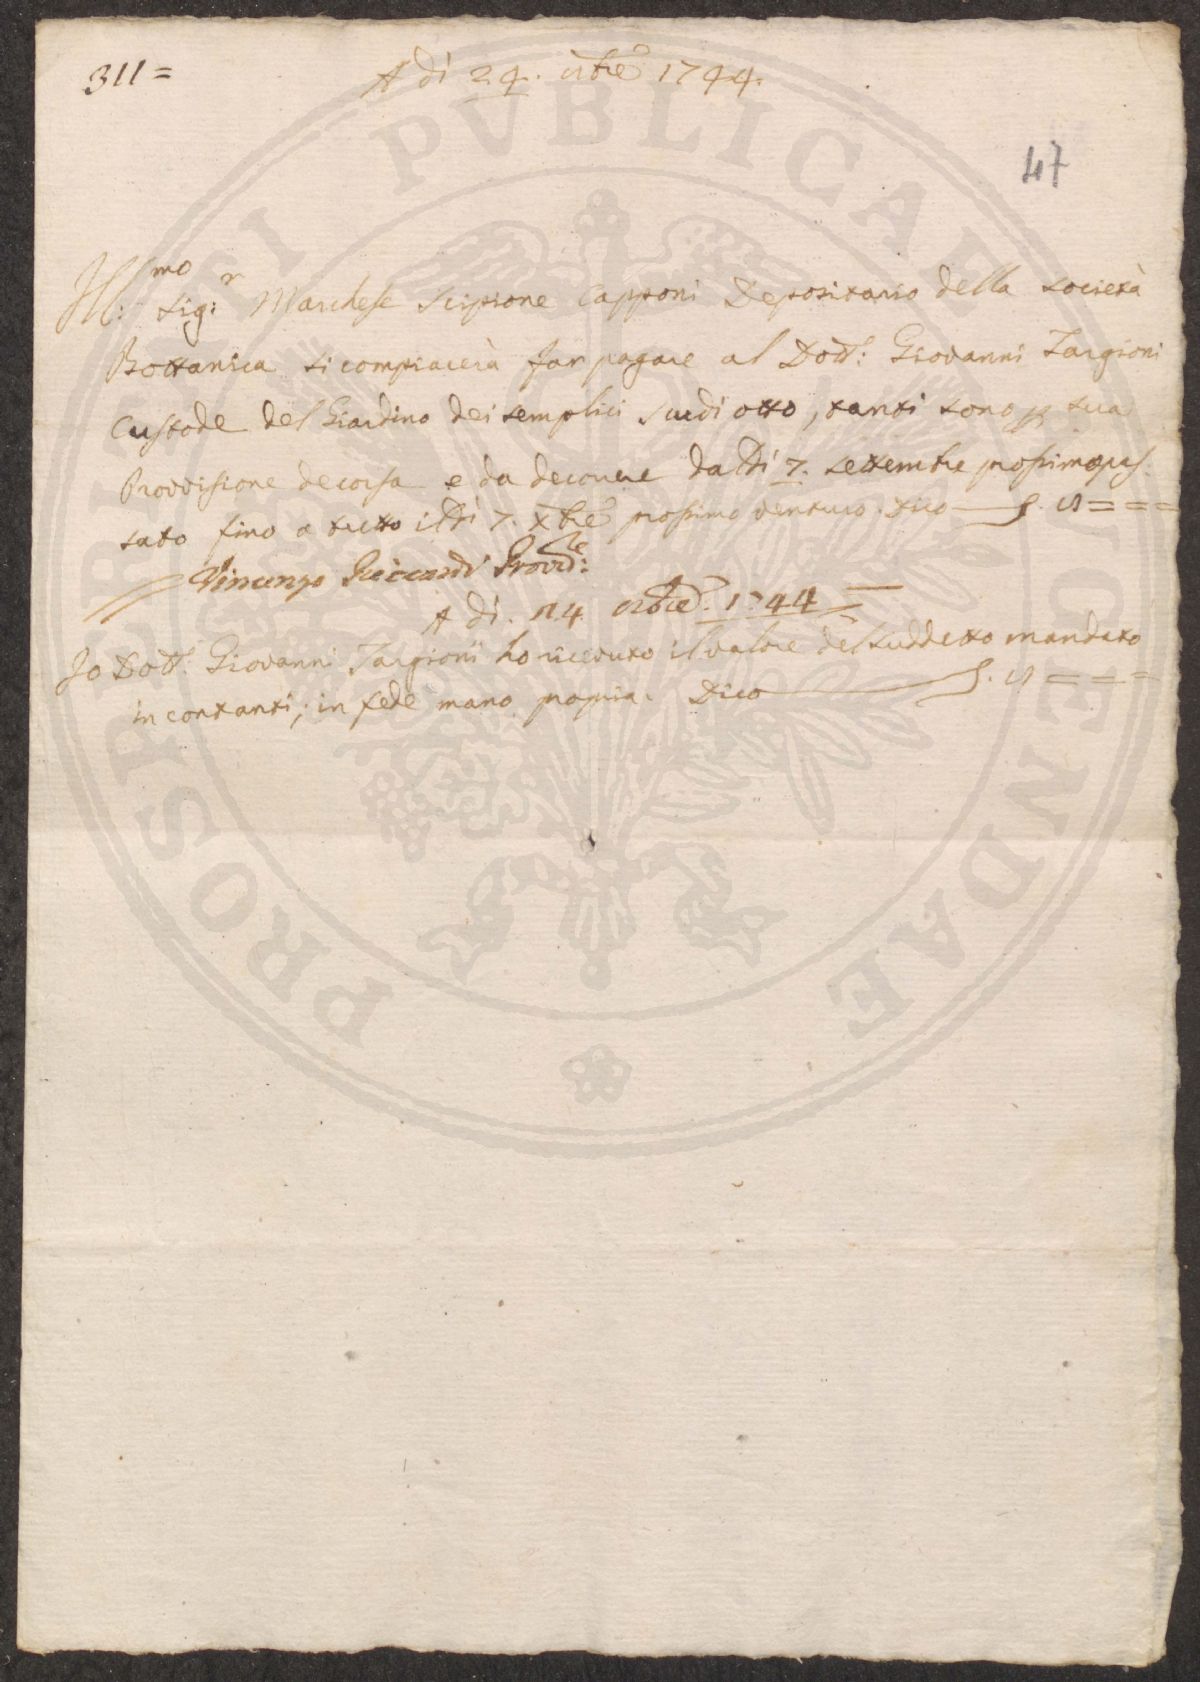 311=
A dì 24. 9bre 1744.
47
Ill:mo Sig:r Marchese Scipione Capponi Depositario della Società
Bottanica si compiacerà far pagare al Dott: Giovanni Targioni
Custode del Giardino dei semplici scudi otto, tanti sono p sua
Provvisione decorsa e da decorrere dal dì 7. settembre prossimopas
sato fino a tutto il dì 7. Xbre prossimo venturo. Dico — 8===
Vincenzo Riccardi Provv:re
A dì. 24 9bre. 1744
Io Dott. Giovanni Targioni ho ricevuto il valore del suddetto mandato
in contanti; in fede mano propria. Dico — 8===
PROSPERITATI PVBLICAE AVGENDAE